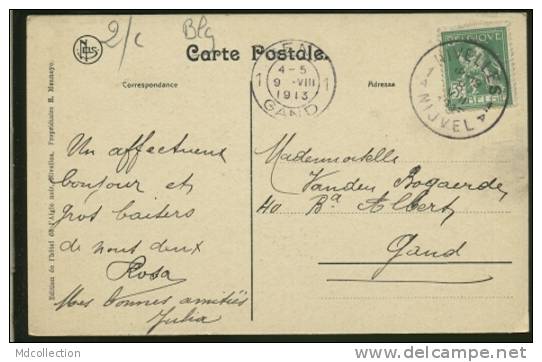 2/c Blg
Nels
Carte Postale.
Correspondance
Adresse
4-5
1 9 -VIII 1
1913
GAND
NIVELLES
1A NIJVEL 1A
BELGIQUE
BELGIË
Edition de l'hôtel de l'Aigle noir, Nivelles, Propriétaire R.
Un affectueux
bonjour et
gros baisers
de nous deux
Rosa
Mes bonnes amitiés
Julia
Mademoiselle
Vanden Bogaerde,
40 Bd Albert,
Gand
Mdcollection
www.delcampe.net